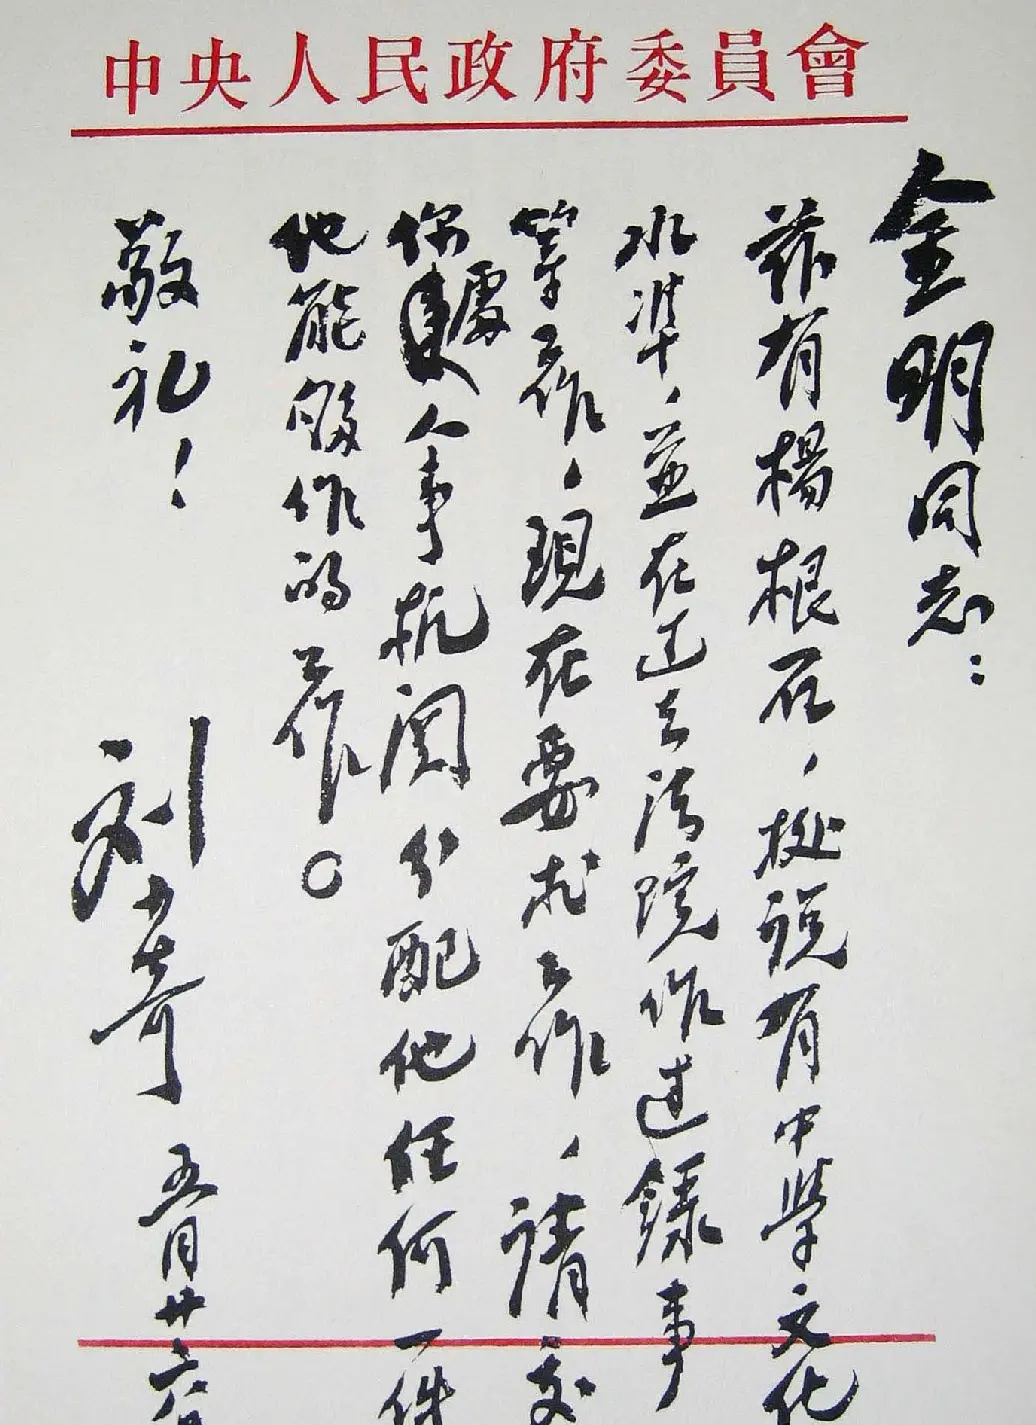 中央人民政府委員會
金明同志：
茲有楊根石，據説有中學文化
水準，並在过去法院作过錄事
等工作，現在要求工作，請交
你處人事机関分配他任何一件
他能够作的工作。
敬礼！
刘少奇 五月廿六日